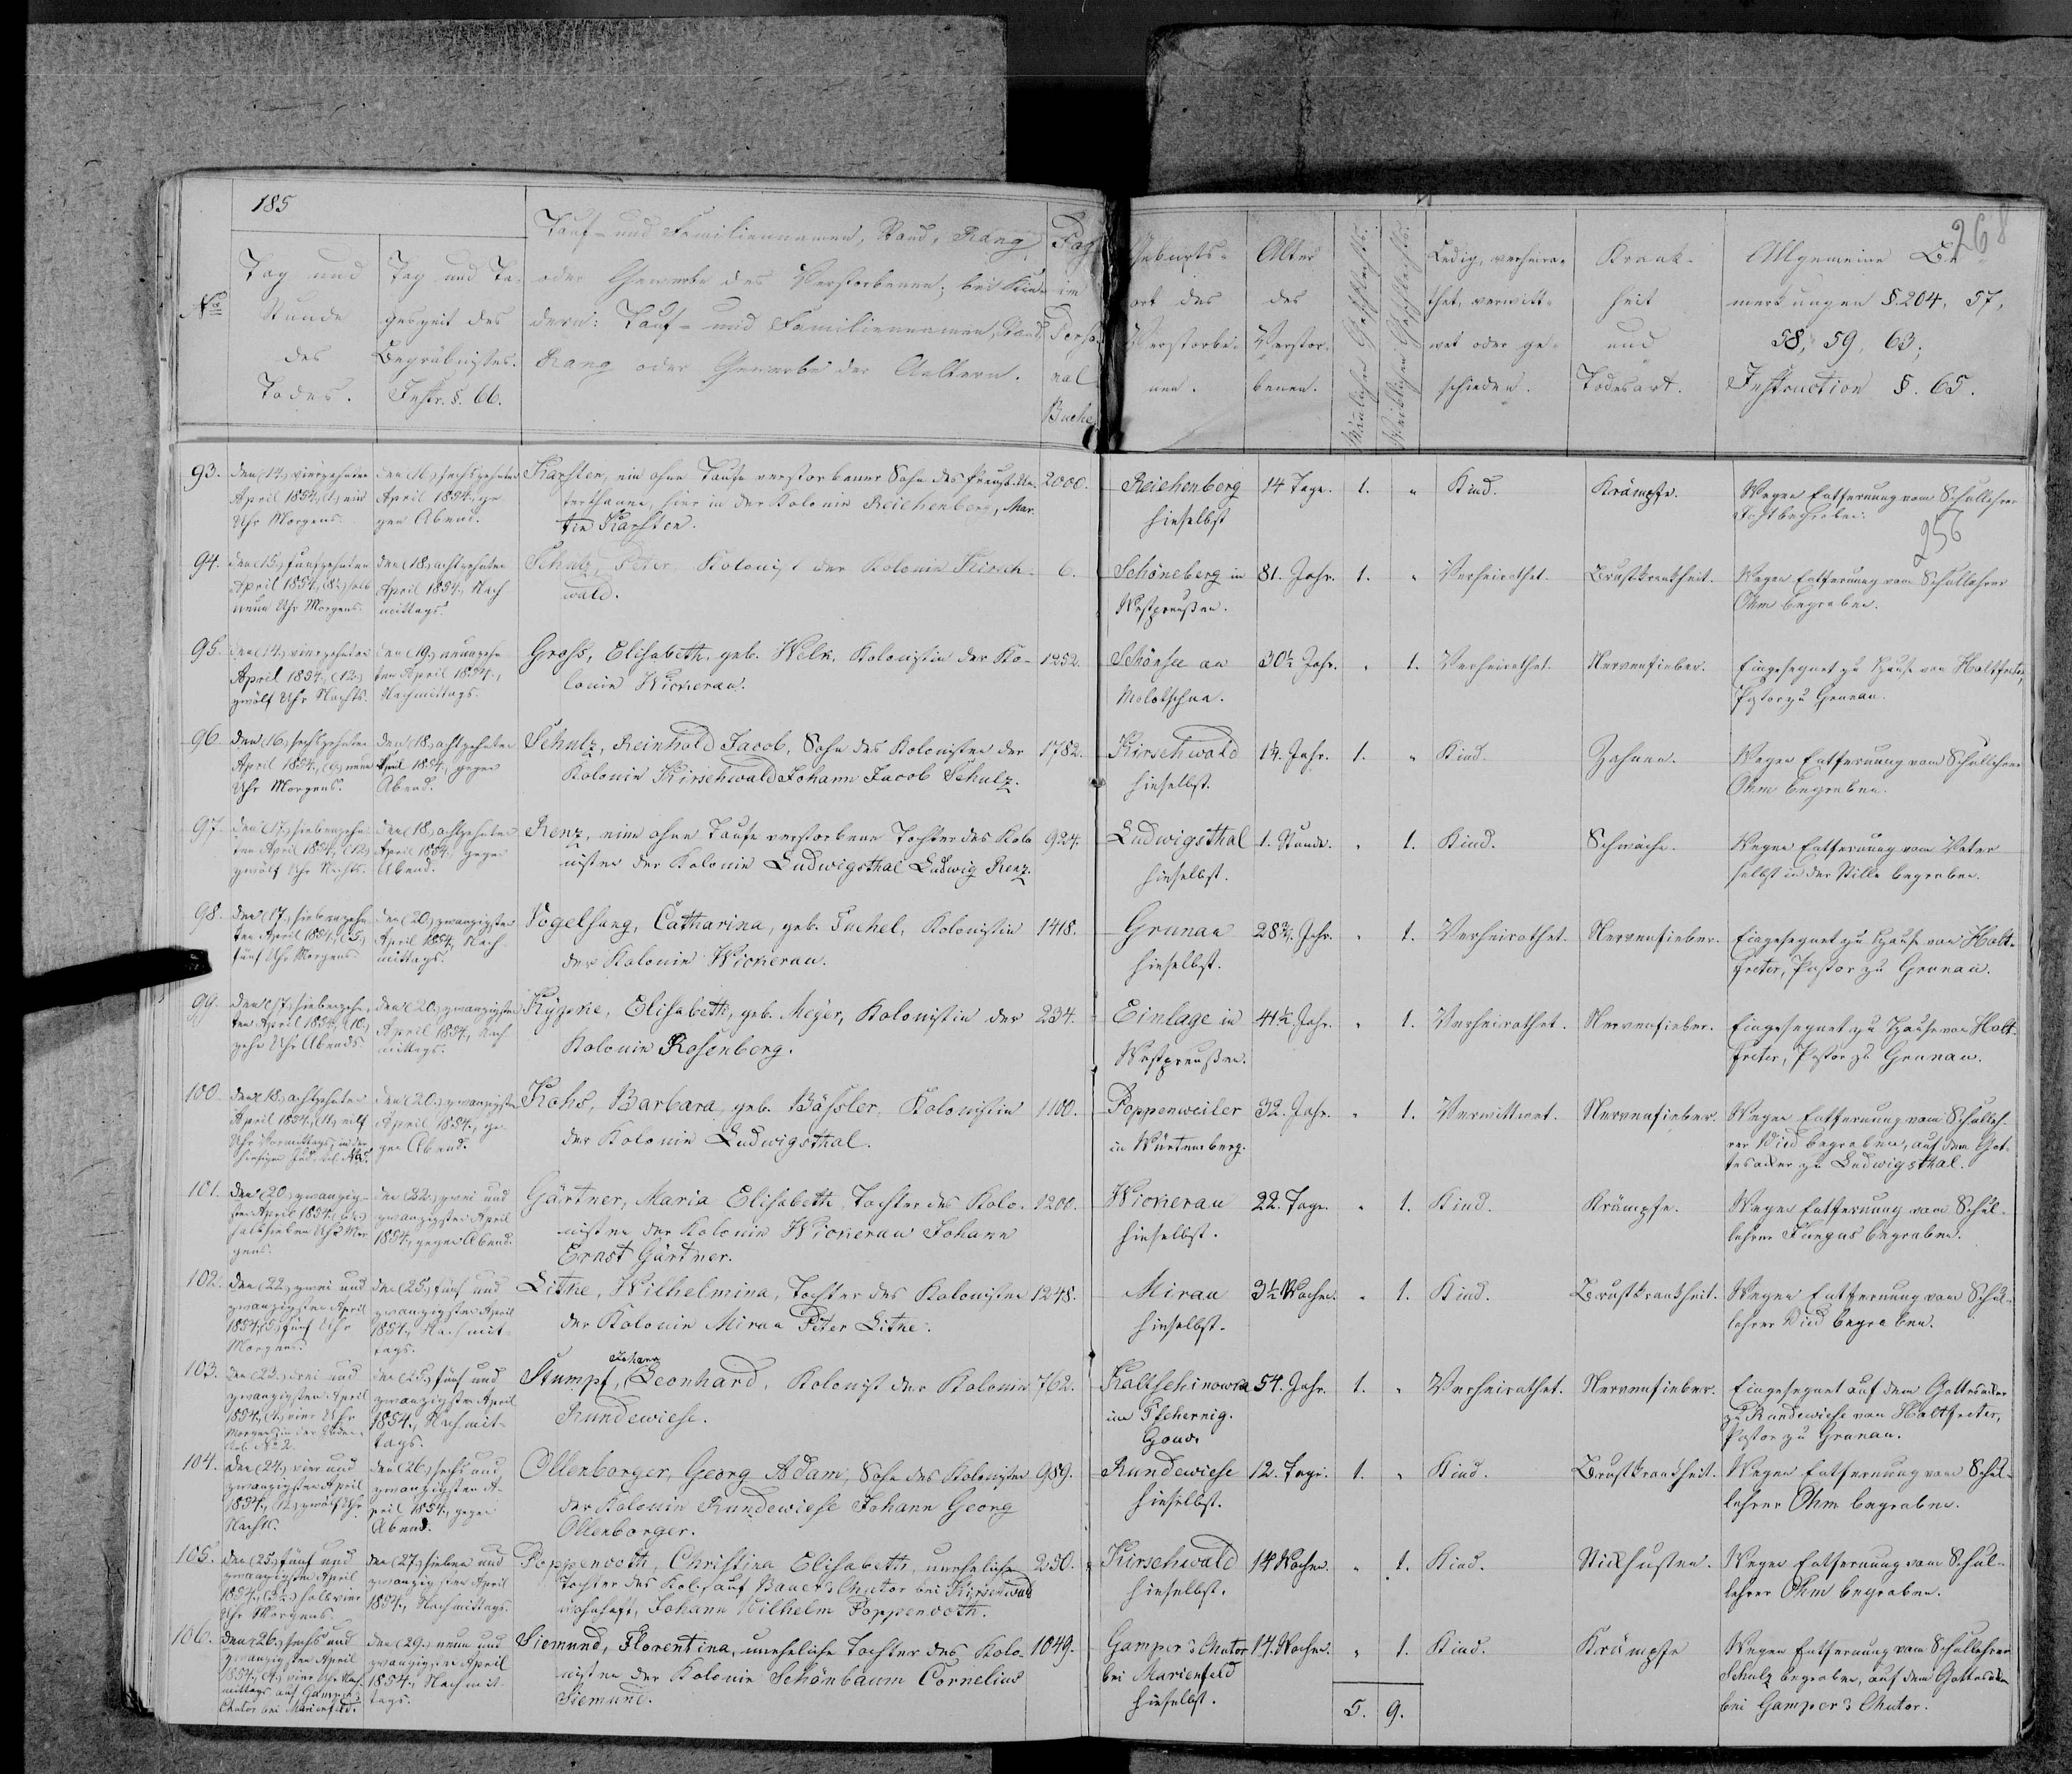 185
268
Nro
Tag und
Stunde
des
Todes.
Tag und Ta-
geszeit des
Begräbnisses.
Instr. §. 66.
Tauf- und Familiennamen, Stand, Rang
oder Gewerbe des Verstorbenen; bei Kin-
dern: Tauf- und Familiennamen, Stand,
Rang oder Gewerbe der Aeltern.
Pag
im
Perso-
nal
Buche
Geburts-
ort des
Verstorbe-
nen.
Alter
des
Verstor-
benen.
Männlichen Geschlechts.
Weiblichen Geschlechts.
Ledig, verheira-
thet, verwitt-
wet oder ge-
schieden.
Krank-
heit
und
Todesart.
Allgemeine Be-
merkungen §. 204, 57,
58, 59, 63;
Instruction §. 65.
93.
den (14.) vierzehnten
April 1854, (1.) ein
Uhr Morgens.
den (16.) sechszehnten
April 1854, ge-
gen Abend.
Karsten, ein ohne Taufe verstorbener Sohn des Preuß. Un-
terthanen, hier in der Kolonie Reichenberg, Mar-
tin Karsten.
2000.
Reichenberg
hieselbst
14 Tage.
1.
"
Kind.
Krämpfe.
Wegen Entfernung vom Schullehrer
Vogt begraben.
256
94.
den (15.) fünfzehnten
April 1854, (8½) halb
neun Uhr Morgens.
den (18.) achtzehnten
April 1854, Nach-
mittags.
Schulz, Peter, Kolonist der Kolonie Kirsch-
wald.
6.
Schöneberg in
Westpreußen.
81. Jahr.
1.
"
Verheirathet.
Brustkrankheit.
Wegen Entfernung vom Schullehrer
Ohm begraben.
95.
den (14.) vierzehnten
April 1854, (12.)
zwölf Uhr Nachts.
den (19.) neunzehn-
ten April 1854,
Nachmittags.
Gross, Elisabeth, geb. Welk, Kolonistin der Ko-
lonie Wickerau.
1252.
Schönsee an
Molotschna.
30½ Jahr.
"
1.
Verheirathet.
Nervenfieber.
Eingesegnet zu Hause von Holtfreter,
Pastor zu Grunau.
96.
den (16.) sechszehnten
April 1854, (9.) neun
Uhr Morgens.
den (18.) achtzehnten
April 1854, gegen
Abend.
Schulz, Reinhold Jacob, Sohn des Kolonisten der
Kolonie Kirschwald Johann Jacob Schulz.
1782.
Kirschwald
hieselbst.
1¼. Jahr.
1.
"
Kind.
Zahnen.
Wegen Entfernung vom Schullehrer
Ohm begraben.
97.
den (17.) siebenzehn-
ten April 1854, (12.)
zwölf Uhr Nachts.
den (18.) achtzehnten
April 1854, gegen
Abend.
Renz, eine ohne Taufe verstorbene Tochter des Kolo-
nisten der Kolonie Ludwigsthal Ludwig Renz.
924.
Ludwigsthal
hieselbst.
1. Stunde.
"
1.
Kind.
Schwäche.
Wegen Entfernung vom Vater
selbst in der Stille begraben.
98.
den (17.) siebenzehn-
ten April 1854, (5.)
fünf Uhr Morgens.
den (20.) zwanzigsten
April 1854, Nach-
mittags.
Vogelsang, Catharina, geb. Tuchel, Kolonistin
der Kolonie Wickerau.
1418.
Grunau
hieselbst.
28¾. Jahr.
"
1.
Verheirathet.
Nervenfieber.
Eingesegnet zu Hause von Holt-
freter, Pastor zu Grunau.
99.
den (17.) siebenzehn-
ten April 1854, (10.)
zehn Uhr Abends.
den (20.) zwanzigsten
April 1854, Nach-
mittags.
Kypke, Elisabeth, geb. Meyer, Kolonistin der
Kolonie Rosenberg.
234.
Einlage in
Westpreußen.
41½. Jahr.
"
1.
Verheirathet.
Nervenfieber.
Eingesegnet zu Hause von Holt-
freter, Pastor zu Grunau.
100.
den (18.) achtzehnten
April 1854, (11.) eilf
Uhr Vormittags, in der
hiesigen
den (20.) zwanzigsten
April 1854, ge-
gen Abend.
Kohs, Barbara, geb. Bässler, Kolonistin
der Kolonie Ludwigsthal.
1100.
Poppenweiler
in Würtemberg.
32. Jahr.
"
1.
Verwittwet.
Nervenfieber.
Wegen Entfernung vom Schulleh-
rer Died begraben, auf dem Got-
tesacker zu Ludwigsthal.
101.
den (20.) zwanzig-
sten April 1854, (6½)
halb sieben Uhr Mor-
gens.
den (22.) zwei und
zwanzigsten April
1854, gegen Abend.
Gärtner, Maria Elisabeth, Tochter des Kolo-
nisten der Kolonie Wickerau Johann
Ernst Gärtner.
1200.
Wickerau
hieselbst.
22. Tage.
"
1.
Kind.
Krämpfe.
Wegen Entfernung vom Schul-
lehrer Fangas begraben.
102.
den (22.) zwei und
zwanzigsten April
1854, (5.) fünf Uhr
Morgens.
den (25.) fünf und
zwanzigsten April
1854, Nachmit-
tags.
Litke, Wilhelmina, Tochter des Kolonisten
der Kolonie Mirau Peter Litke.
1248.
Mirau
hieselbst.
3½ Wochen.
"
1.
Kind.
Brustkrankheit.
Wegen Entfernung vom Schul-
lehrer Died begraben.
103.
den (23.) drei und
zwanzigsten April
1854, (4.) vier Uhr
Morgens, in der
No 2.
den (25.) fünf und
zwanzigsten April
1854, Nachmit-
tags.
Johann
Stumpf, Leonhard, Kolonist der Kolonie
Rundewiese.
762.
Kaltschinowka
im Tschernig.
Gouv.
54. Jahr.
1.
"
Verheirathet.
Nervenfieber.
Eingesegnet auf dem Gottesacker
zu Rundewiese von Holtfreter,
Pastor zu Grunau.
104.
den (24.) vier und
zwanzigsten April
1854, (12.) zwölf Uhr
Nachts.
den (26.) sechs und
zwanzigsten A-
pril 1854, gegen
Abend.
Ollenborger, Georg Adam, Sohn des Kolonisten
der Kolonie Rundewiese Johann Georg
Ollenborger.
989.
Rundewiese
hieselbst.
12. Tage.
1.
"
Kind.
Brustkrankheit.
Wegen Entfernung vom Schul-
lehrer Ohm begraben.
105.
den (25.) fünf und
zwanzigsten April
1854, (3½) halb vier
Uhr Morgens.
den (27.) sieben und
zwanzigsten April
1854, Nachmittags.
Poppenroth, Christina Elisabeth, uneheliche
Tochter des Kolo. auf Bauer's Chutor bei Kirschwald
wohnhaft, Johann Wilhelm Poppenroth.
250.
Kirschwald
hieselbst.
14 Wochen.
"
1.
Kind.
Stickhusten.
Wegen Entfernung vom Schul-
lehrer Ohm begraben.
106.
den (26.) sechs und
zwanzigsten April
1854, (4.) vier Uhr Nach-
mittags auf Gamper's
Chutor bei Marienfeld.
den (29.) neun und
zwanzigsten April
1854, Nachmit-
tags.
Siemund, Florentina, uneheliche Tochter des Kolo-
nisten der Kolonie Schönbaum Cornelius
Siemund.
1049.
Gamper's Chutor
bei Marienfeld
hieselbst.
14. Wochen.
"
1.
Kind.
Krämpfe
Wegen Entfernung vom Schullehrer
Schulz begraben, auf dem Gottesacker
bei Gamper's Chutor.
5. 9.